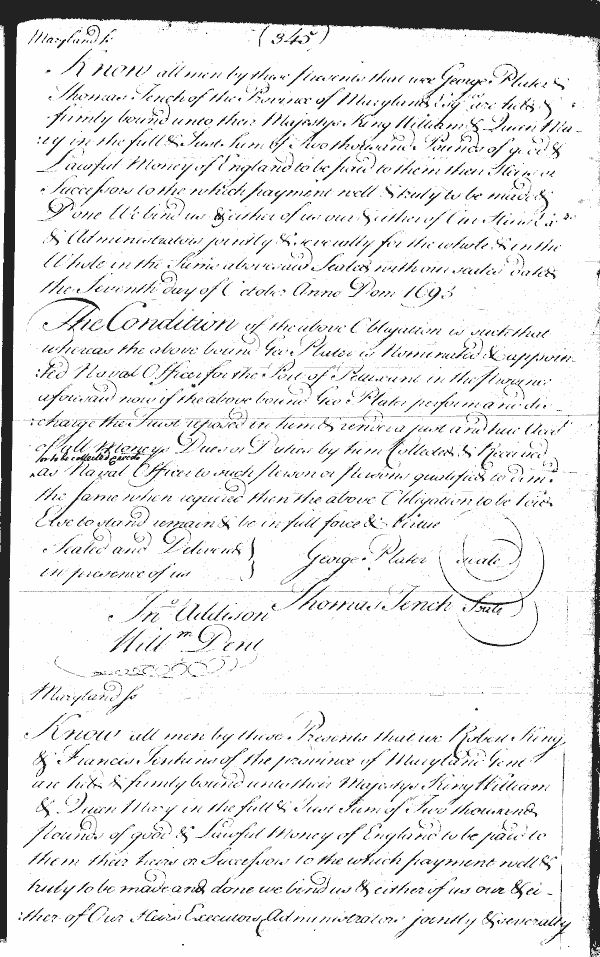 Maryland ss
(345)
Know all men by these presents that wee George Plater &
Thomas Tench of the Province of Maryland Esqrs are held &
firmly bound unto their Majestys King William & Queen Ma-
ry in the full & Just sum of Two thousand Pounds of good &
Lawful Money of England to be paid to them their Heirs or
Successors to the which payment well & truly to be made &
Done We bind us & either of us our & either of Our Heirs Exrs
& Administrators jointly & severally for the whole & in the
Whole in the Sume abovesaid Sealed with our seales dated
the Seventh day of October Anno Dom 1695
The Condition of the above Obligation is such that
whereas the above bound Geo Plater is Nominated & appoin-
:ted Naval Officer for the Port of Petuxent in the Province
aforesaid now if the above bound Geo Plater perform and dis-
:charge the Trust reposed in him & render a just and true Accot
of all Moneys Dues or Dutys by him Collected & Received
or to be collected & received
as Naval Officer to such person or persons qualified to dem.d
the same when required then the above Obligation to be Void
Else to stand remain & be in full force & Virtue
Sealed and Delivered }
in presence of us }
George Plater seale
Thomas Tench Seale
Jno Addison
Willm Dent
Maryland ss
Know all men by these Presents that we Robert King
& Francis Jenkins of the province of Maryland Gent
are held & firmly bound unto their Majestys King William
& Queen Mary in the full & Just Sum of Two thousand
pounds of good & Lawful Money of England to be paid to
them their heirs or Successors to the which payment well &
truly to be made and done we bind us & either of us our & ei-
:ther of Our Heirs Executors Administrators jointly & severally